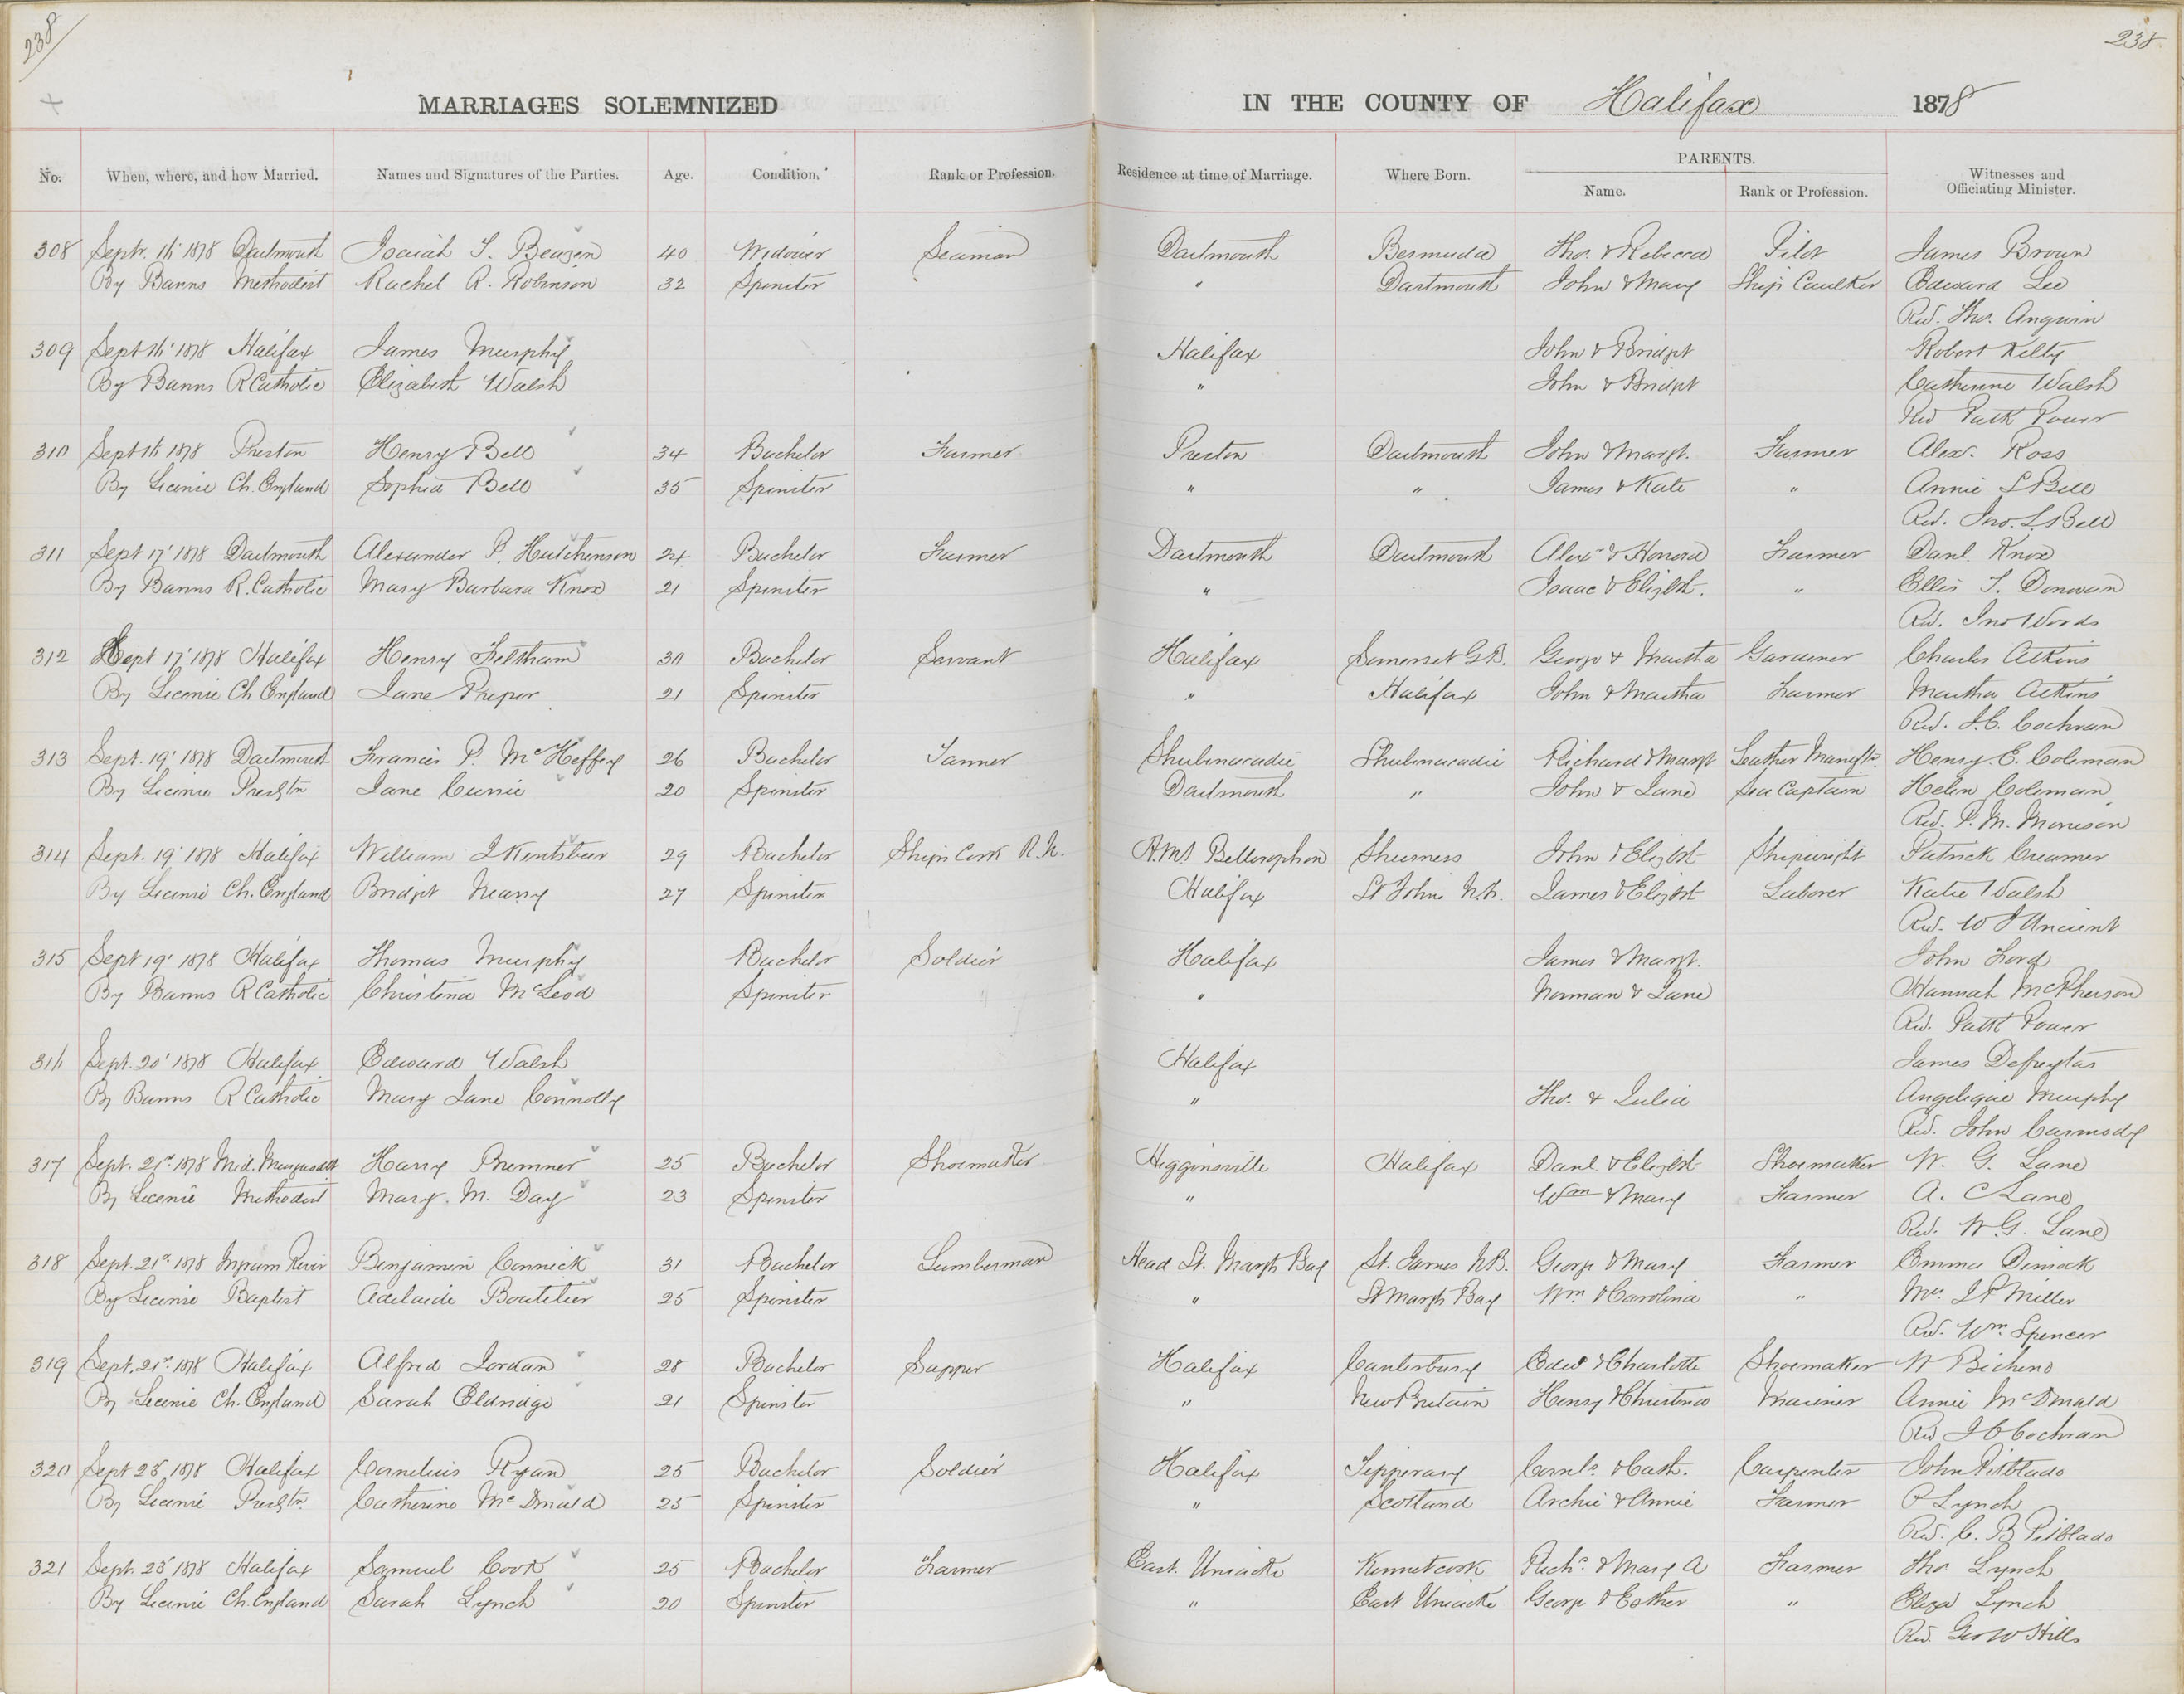 238
238
MARRIAGES SOLEMNIZED IN THE COUNTY OF Halifax 1878
No. When, where, and how Married. Names and Signatures of the Parties. Age. Condition. Rank or Profession. Residence at time of Marriage. Where Born. PARENTS. Name. Rank or Profession. Witnesses and Officiating Minister.
308 Septr. 16' 1878 Dartmouth Isaiah S. Beazen 40 Widower Seaman Dartmouth Bermuda Thos. & Rebecca Pilot James Brown
By Banns Methodist Rachel R. Robinson 32 Spinster " Dartmouth John & Mary Ship Caulker Edward Lee
Rev. Thos. Angwin
309 Sept 16' 1878 Halifax James Murphy Halifax John & Bridgt Robert Kelly
By Banns R Catholic Elizabeth Walsh " John & Bridgt Catherine Walsh
Rev Patk Power
310 Sept 16 1878 Preston Henry Bell 34 Bachelor Farmer Preston Dartmouth John & Margt. Farmer Alex. Ross
By Licence Ch. England Sophia Bell 35 Spinster " " James & Kate " Annie L Bell
Rev. Jno. L. Bell
311 Sept 17' 1878 Dartmouth Alexander P. Hutchenson 24 Bachelor Farmer Dartmouth Dartmouth Alexr & Honora Farmer Danl. Knox
By Banns R. Catholic Mary Barbara Knox 21 Spinster " Isaac & Elizbth. " Ellis S. Donovan
Rev. Jno Woods
312 Sept 17' 1878 Halifax Henry Feltham 30 Bachelor Servant Halifax Somerset G.B. George & Martha Gardener Charles Atkins
By Licence Ch England Jane Preper 21 Spinster " Halifax John & Martha Farmer Martha Atkins
Rev. J. C. Cochran
313 Sept. 19' 1878 Dartmouth Francis P. McHeffey 26 Bachelor Tanner Shubenacadie Shubenacadie Richard & Margt Leather Manuftr. Henry E. Coleman
By Licence Presbtn Jane Currie 20 Spinster Dartmouth " John & Jane Sea Captain Helen Coleman
Rev. P. M. Morrison
314 Sept. 19' 1878 Halifax William J Kentsbeer 29 Bachelor Ship's Cook R.N. H.M.S Bellerophon Sheerness John & Elizbt Shipwright Patrick Creamer
By Licence Ch. England Bridgt Neary 27 Spinster Halifax St Johns N.F. James & Elizbt Laborer Katie Walsh
Rev. W J Ancient
315 Sept 19' 1878 Halifax Thomas Murphy Bachelor Soldier Halifax James & Margt. John Ford
By Banns R Catholic Christina McLeod Spinster " Norman & Jane Hannah McPherson
Rev. Patk Power
316 Sept. 20' 1878 Halifax Edward Walsh Halifax James Defreytas
By Banns R Catholic Mary Jane Connolly " Thos. & Julia Angelique Murphy
Rev. John Carmody
317 Sept. 21st 1878 Mid. Musquodbt Harry Bremner 25 Bachelor Shoemaker Higginsville Halifax Danl. & Elizbt Shoemaker W. G. Lane
By Licence Methodist Mary. M. Day 23 Spinster " Wm & Mary Farmer A. C Lane
Rev. W. G. Lane
318 Sept. 21st 1878 Ingram River Benjamin Connick 31 Bachelor Lumberman Head St. Margts Bay St. James N.B. George & Mary Farmer Emma Dimock
By Licence Baptist Adelaide Boutilier 25 Spinster " St Margts Bay Wm & Carolina " Mrs J F Miller
Rev. Wm. Spencer
319 Sept. 21st 1878 Halifax Alfred Jordan 28 Bachelor Sapper Halifax Canterbury Edwd & Charlotte Shoemaker W Bicheno
By Licence Ch. England Sarah Eldridge 21 Spinster " New Britain Henry & Christina Mariner Annie McDonald
Rev J C Cochran
320 Sept 23 1878 Halifax Cornelius Ryan 25 Bachelor Soldier Halifax Tipperary Cornls. & Cath. Carpenter John Pitblado
By Licence Presbtn Catherine McDonald 25 Spinster " Scotland Archie & Annie Farmer P Lynch
Rev. C. B Pitblado
321 Sept. 23 1878 Halifax Samuel Cook 25 Bachelor Farmer East Uniacke Kennetcook Richd. & Mary A Farmer Thos Lynch
By Licence Ch. England Sarah Lynch 20 Spinster " East Uniacke George & Esther " Eliza Lynch
Rev. Geo W Hills